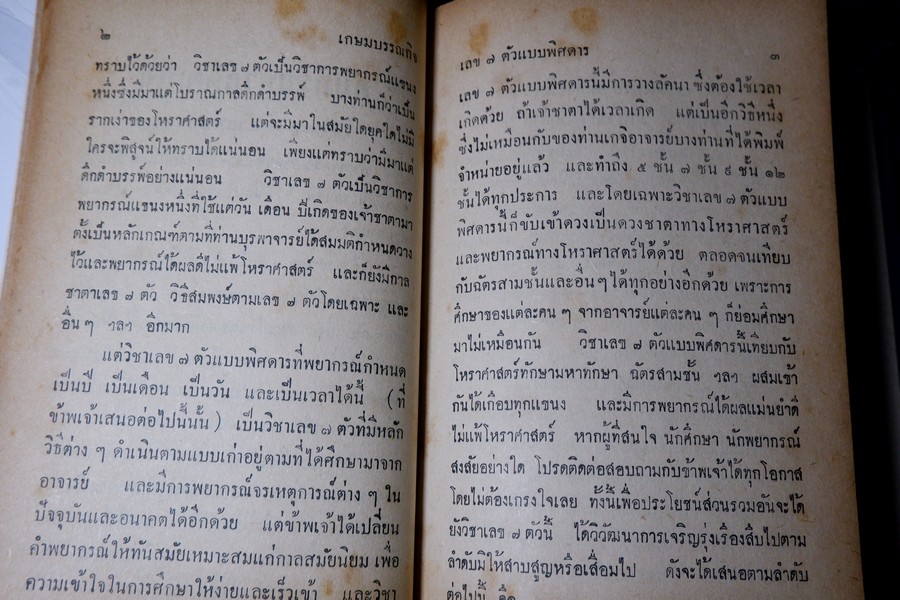 ๒
เกษมบรรณกิจ
ทราบไว้ด้วยว่า วิชาเลข ๗ ตัวเป็นวิชาการพยากรณ์แขนง
หนึ่งซึ่งมีมาแต่โบราณกาลดึกดำบรรพ์ บางท่านก็ว่าเป็น
รากเง่าของโหราศาสตร์ แต่จะมีมาในสมัยใดยุคใดไม่มี
ใครจะพิสูจน์ให้ทราบได้แน่นอน เพียงแต่ทราบว่ามีมาแต่
ดึกดำบรรพ์อย่างแน่นอน วิชาเลข ๗ ตัวเป็นวิชาการ
พยากรณ์แขนงหนึ่งที่ใช้แต่วัน เดือน ปีเกิดของเจ้าชาตามา
ตั้งเป็นหลักเกณฑ์ตามที่ท่านบุรพาจารย์ได้สมมติกำหนดวาง
ไว้และพยากรณ์ได้ผลดีไม่แพ้โหราศาสตร์ และก็ยังมีกาล
ชาตาเลข ๗ ตัว วิธีสัมพงษ์ตามเลข ๗ ตัวโดยเฉพาะ และ
อื่น ๆ ฯลฯ อีกมาก
แต่วิชาเลข ๗ ตัวแบบพิศดารที่พยากรณ์กำหนด
เป็นปี เป็นเดือน เป็นวัน และเป็นเวลาได้นี้ (ที่
ข้าพเจ้าเสนอต่อไปนี้นั้น) เป็นวิชาเลข ๗ ตัวที่มีหลัก
วิธีต่าง ๆ ดำเนินตามแบบเก่าอยู่ตามที่ได้ศึกษามาจาก
อาจารย์ และมีการพยากรณ์จรเหตุการณ์ต่าง ๆ ใน
ปัจจุบันและอนาคตได้อีกด้วย แต่ข้าพเจ้าได้เปลี่ยน
คำพยากรณ์ให้ทันสมัยเหมาะสมแก่กาลสมัยนิยม เพื่อ
ความเข้าใจในการศึกษาให้ง่ายและเร็วเข้า และวิชา
เลข ๗ ตัวแบบพิศดาร
๓
เลข ๗ ตัวแบบพิศดารนี้มีการวางลัคนา ซึ่งต้องใช้เวลา
เกิดด้วย ถ้าเจ้าชาตาได้เวลาเกิด แต่เป็นอีกวิธีหนึ่ง
ซึ่งไม่เหมือนกับของท่านเกจิอาจารย์บางท่านที่ได้พิมพ์
จำหน่ายอยู่แล้ว และทำถึง ๕ ชั้น ๗ ชั้น ๙ ชั้น ๑๒
ชั้นได้ทุกประการ และโดยเฉพาะวิชาเลข ๗ ตัวแบบ
พิศดารนี้ก็ขับเข้าดวงเป็นดวงชาตาทางโหราศาสตร์
และพยากรณ์ทางโหราศาสตร์ได้ด้วย ตลอดจนเทียบ
กับฉัตรสามชั้นและอื่น ๆ ได้ทุกอย่างอีกด้วย เพราะการ
ศึกษาของแต่ละคน ๆ จากอาจารย์แต่ละคน ๆ ก็ย่อมศึกษา
มาไม่เหมือนกัน วิชาเลข ๗ ตัวแบบพิศดารนี้เทียบกับ
โหราศาสตร์ทักษามหาทักษา ฉัตรสามชั้น ฯลฯ ผสมเข้า
กันได้เกือบทุกแขนง และมีการพยากรณ์ได้ผลแม่นยำดี
ไม่แพ้โหราศาสตร์ หากผู้ที่สนใจ นักศึกษา นักพยากรณ์
สงสัยอย่างใด โปรดติดต่อสอบถามกับข้าพเจ้าได้ทุกโอกาส
โดยไม่ต้องเกรงใจเลย ทั้งนี้เพื่อประโยชน์ส่วนรวมอันจะได้
ยังวิชาเลข ๗ ตัวนี้ ได้วิวัฒนาการเจริญรุ่งเรืองสืบไปตาม
ลำดับมิให้สาบสูญหรือเสื่อมไป ดังจะได้เสนอตามลำดับ
ต่อไปนี้ คือ